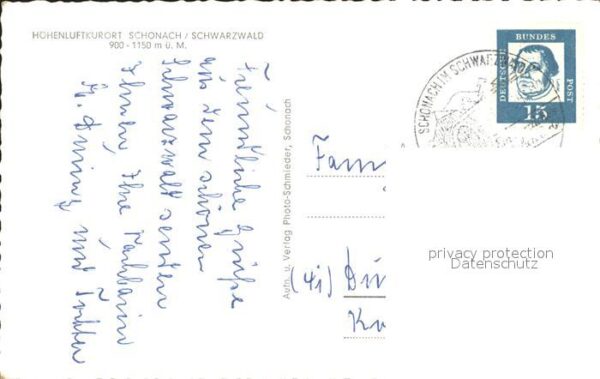 HÖHENLUFTKURORT SCHONACH / SCHWARZWALD
900 - 1150 m ü. M.
Freundliche Grüße
aus dem schönen
Schwarzwald senden
Ihnen Ihre Nachbarin
und
Aufn. u. Verlag Photo-Schmieder, Schonach
SCHONACH IM SCHWARZWALD
DEUTSCHE
BUNDES
POST
15
Fam
(41) Dü
privacy protection
Datenschutz